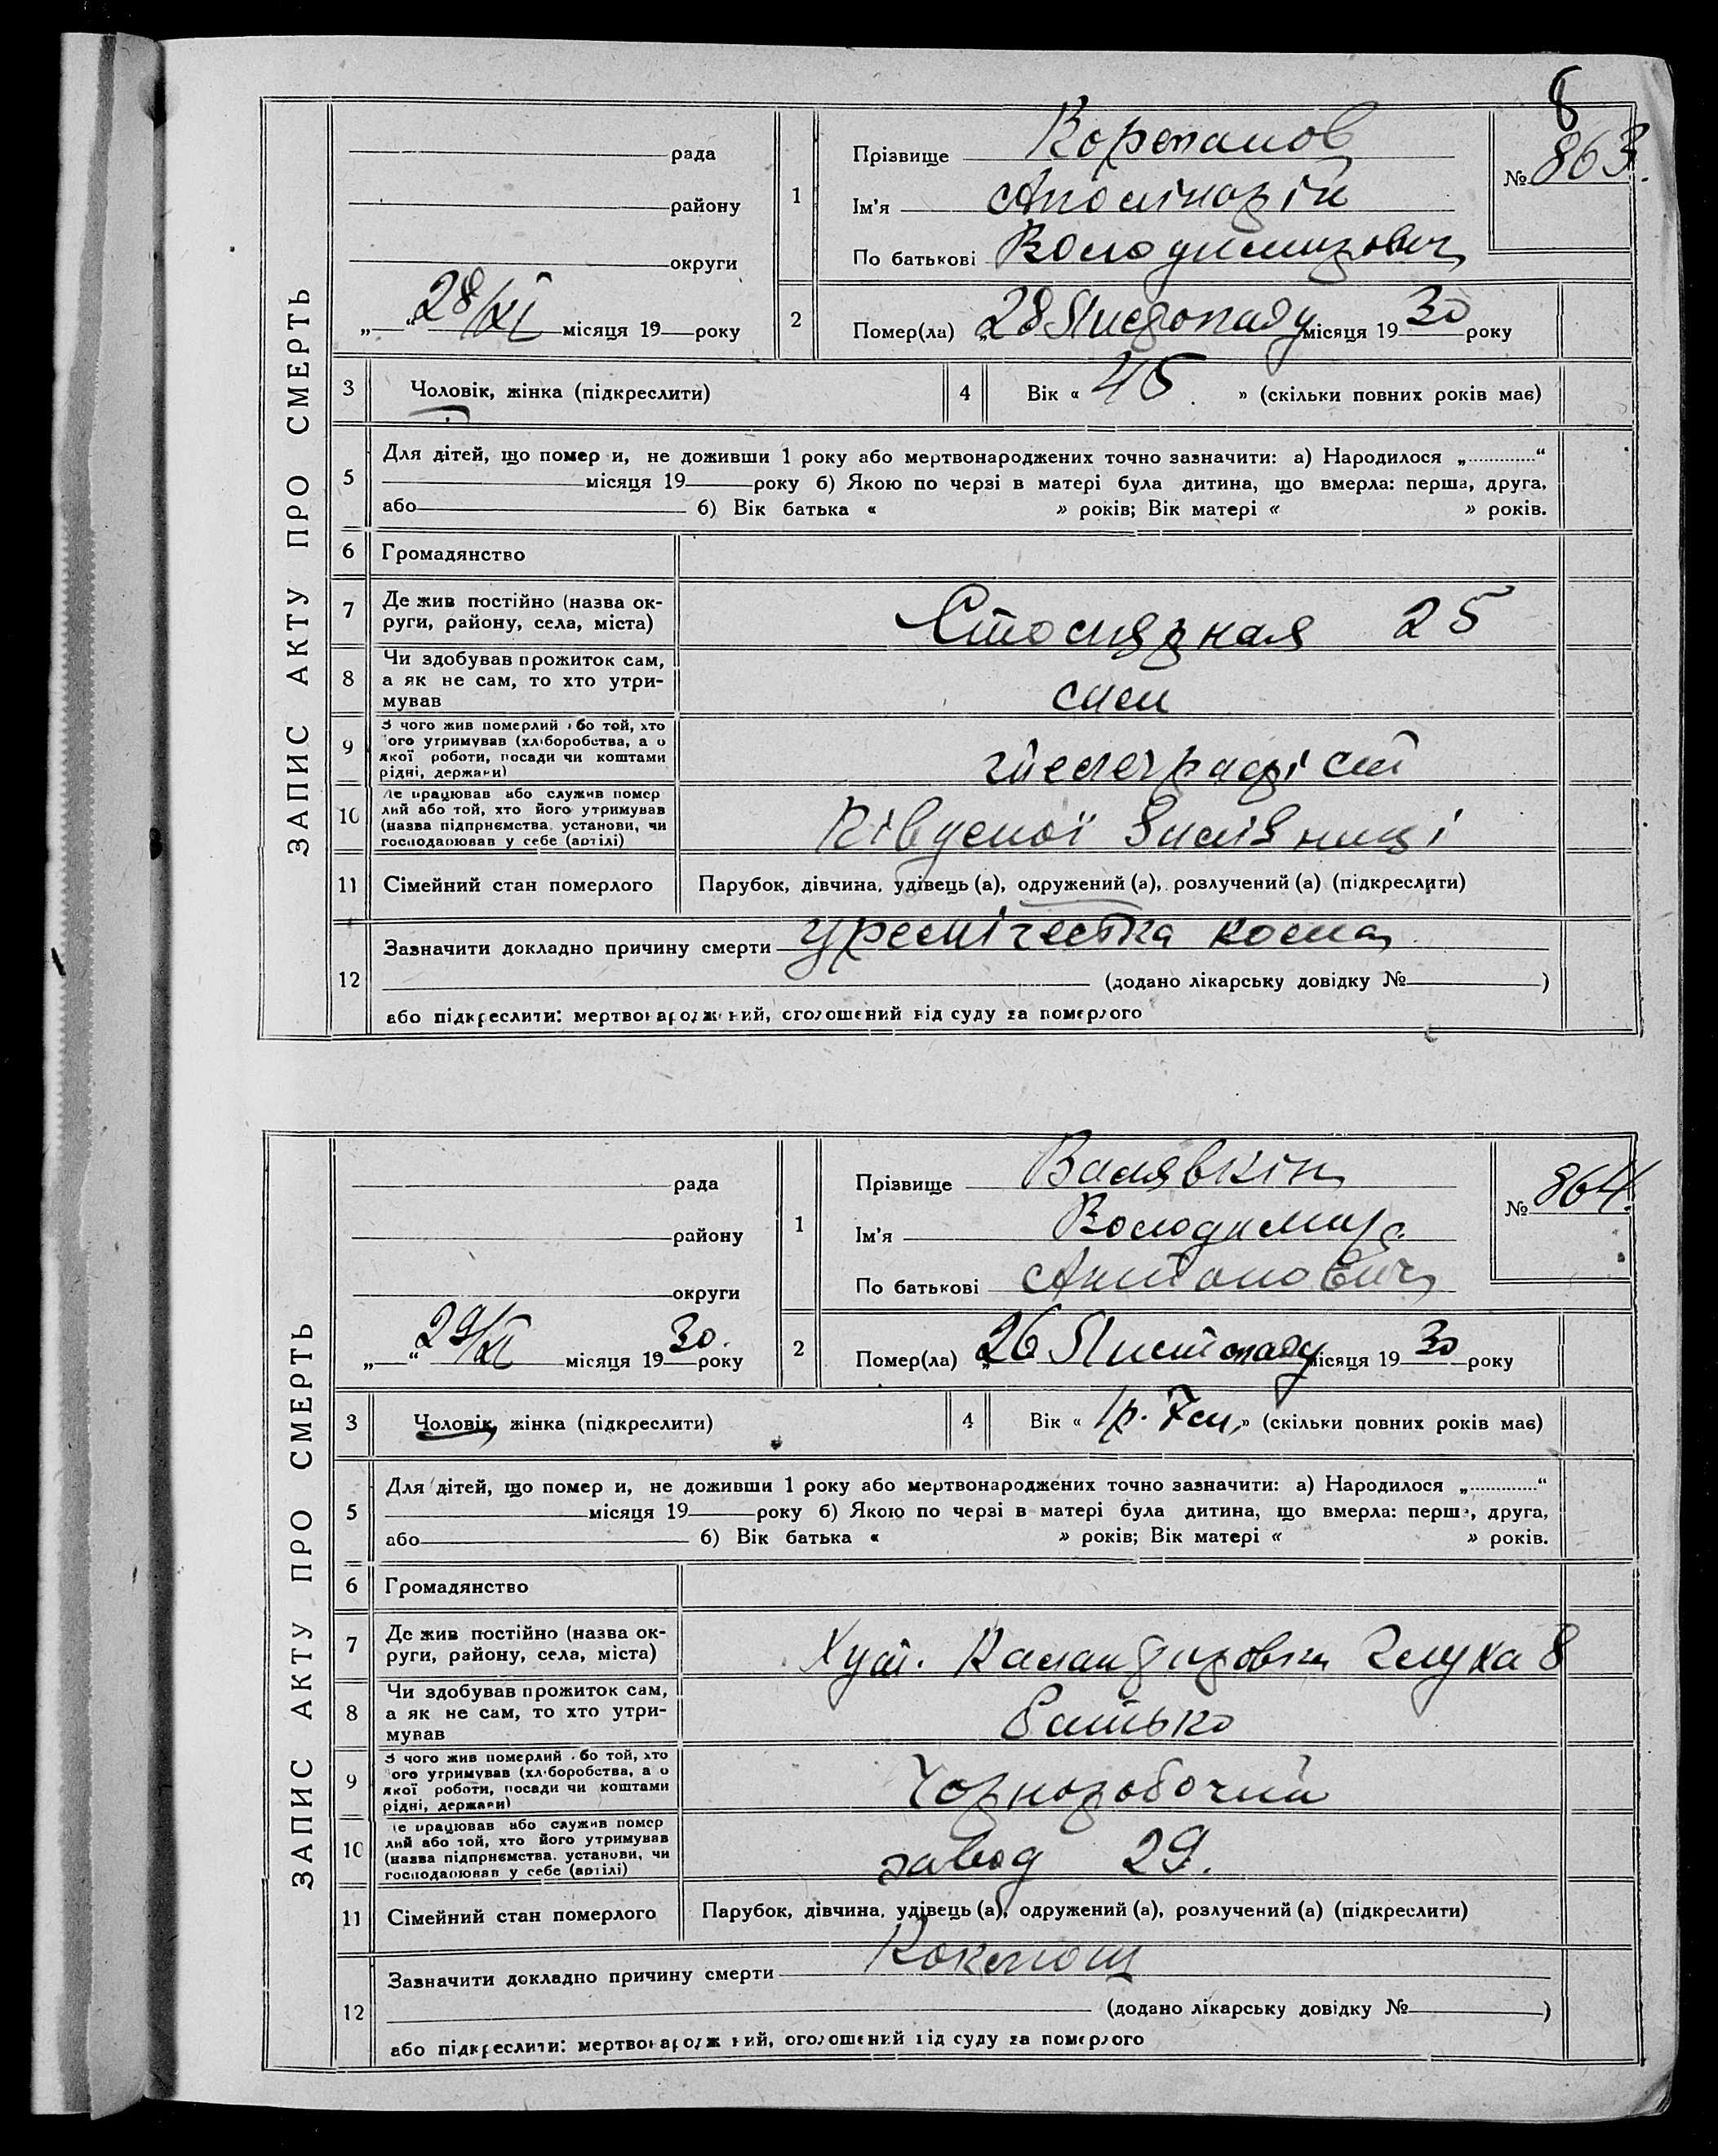 8
ЗАПИС АКТУ ПРО СМЕРТЬ
рада
району
округи
28/XI місяця 19 року
1
Прізвище Корепанов
Ім'я Аполінарій
По батькові Володимирович
№ 863.
2
Помер(ла) „28 Листопаду місяця 1930 року
3
Чоловік, жінка (підкреслити)
4
Вік « 45 » (скільки повних років має)
5
Для дітей, що помер и, не доживши 1 року або мертвонароджених точно зазначити: а) Народилося „ “
місяця 19 року б) Якою по черзі в матері була дитина, що вмерла: перша, друга,
або б) Вік батька « » років; Вік матері « » років.
6
Громадянство
7
Де жив постійно (назва ок-
руги, району, села, міста)
Столярная 25
8
Чи здобував прожиток сам,
а як не сам, то хто утри-
мував
сам
9
З чого жив померлий або той, хто
ого утримував (хліборобства, а о
якої роботи, посади чи коштами
рідні, держави)
телеграфіст
10
Де працював або служив помер
лий або той, хто його утримував
(назва підприємства, установи, чи
господарював у себе (артілі)
Південої Залізниці
11
Сімейний стан померлого
Парубок, дівчина, удівець (а), одружений (а), розлучений (а) (підкреслити)
12
Зазначити докладно причину смерти уремічестка кома
(додано лікарську довідку № )
або підкреслити: мертвонароджений, оголошений від суду за померлого
ЗАПИС АКТУ ПРО СМЕРТЬ
рада
району
округи
29/XI місяця 1930. року
1
Прізвище Валявкін
Ім'я Володимир
По батькові Антонович
№ 864.
2
Помер(ла) „26 Листопаду місяця 1930 року
3
Чоловік, жінка (підкреслити)
4
Вік « 1р. 7м. » (скільки повних років має)
5
Для дітей, що помер и, не доживши 1 року або мертвонароджених точно зазначити: а) Народилося „ “
місяця 19 року б) Якою по черзі в матері була дитина, що вмерла: перша, друга,
або б) Вік батька « » років; Вік матері « » років.
6
Громадянство
7
Де жив постійно (назва ок-
руги, району, села, міста)
Хут. Глуха 8
8
Чи здобував прожиток сам,
а як не сам, то хто утри-
мував
Батько
9
З чого жив померлий або той, хто
ого утримував (хліборобства, а о
якої роботи, посади чи коштами
рідні, держави)
Чорноробочий
10
Де працював або служив помер
лий або той, хто його утримував
(назва підприємства, установи, чи
господарював у себе (артілі)
завод 29.
11
Сімейний стан померлого
Парубок, дівчина, удівець (а), одружений (а), розлучений (а) (підкреслити)
12
Зазначити докладно причину смерти Коклюш
(додано лікарську довідку № )
або підкреслити: мертвонароджений, оголошений від суду за померлого